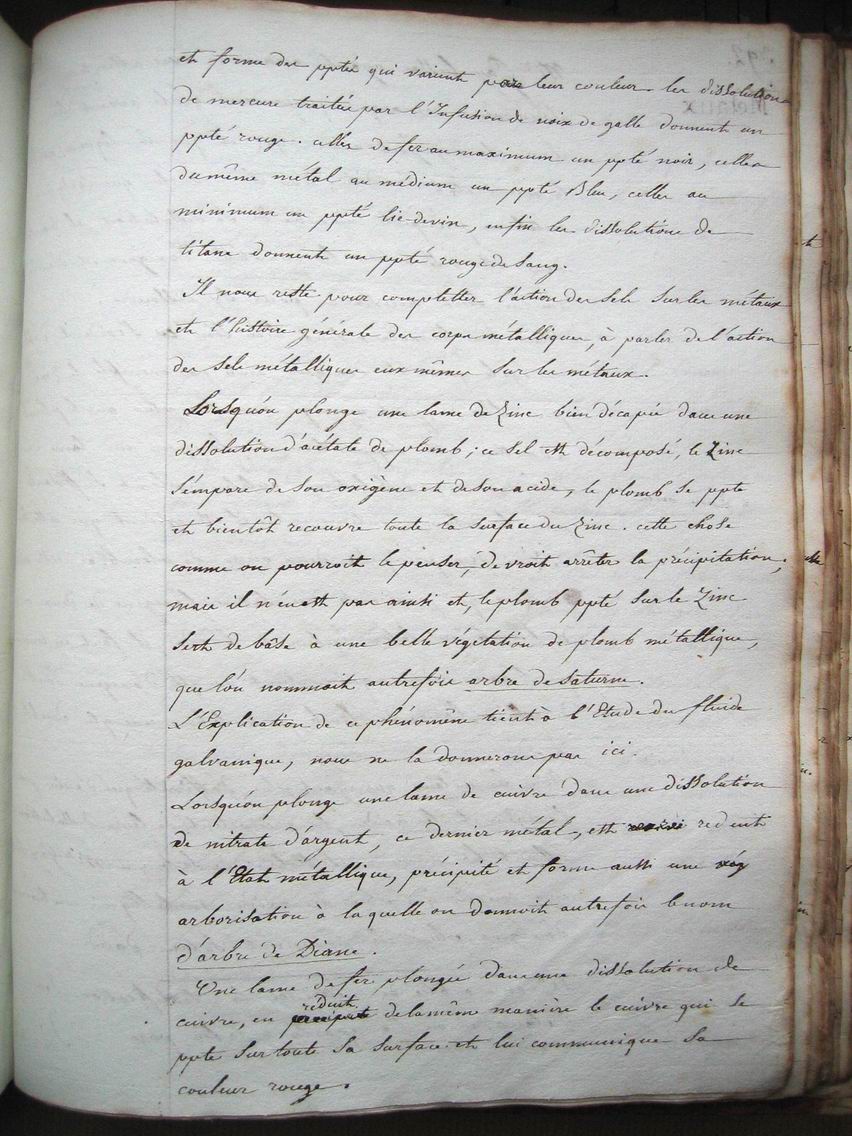 et forme des ppté qui varient par leur couleur. les dissolutions
de mercure traitées par l'Infusion de noix de galle donnent un
ppté rouge. celles de fer au maximum un ppté noir, celles
du même métal au médium un ppté Bleu, celles au
minimum un ppté lie-de-vin, enfin les dissolutions de
titane donnent un ppté rouge de sang.
Il nous reste pour completter l'action des sels sur les métaux
et l'histoire générale des corps métalliques, à parler de l'action
des sels métalliques eux mêmes sur les métaux.
Lorsqu'on plonge une lame de Zinc bien décapée dans une
dissolution d'acétate de plomb; ce sel est décomposé, le Zinc
s'empare de son oxigène et de son acide, le plomb se ppte
et bientôt recouvre toute la surface du Zinc. cette chose
comme on pourroit le penser, devroit arrêter la précipitation;
mais il n'en est pas ainsi et, le plomb ppté sur le Zinc
sert de bâse à une belle végétation de plomb métallique,
que l'on nommoit autrefois arbre de Saturne.
L'Explication de ce phénomène tient à l'Etude du fluide
galvanique, nous ne la donnerons pas ici.
Lorsqu'on plonge une lame de cuivre dans une dissolution
de nitrate d'argent, ce dernier métal, est reduit
à l'Etat métallique, précipité et forme aussi une vég
arborisation à laquelle on donnoit autrefois le nom
d'arbre de Diane.
Une lame de fer plongée dans une dissolution de
cuivre, en réduit de la même manière le cuivre qui se
ppte sur toute sa surface et lui communique sa
couleur rouge.